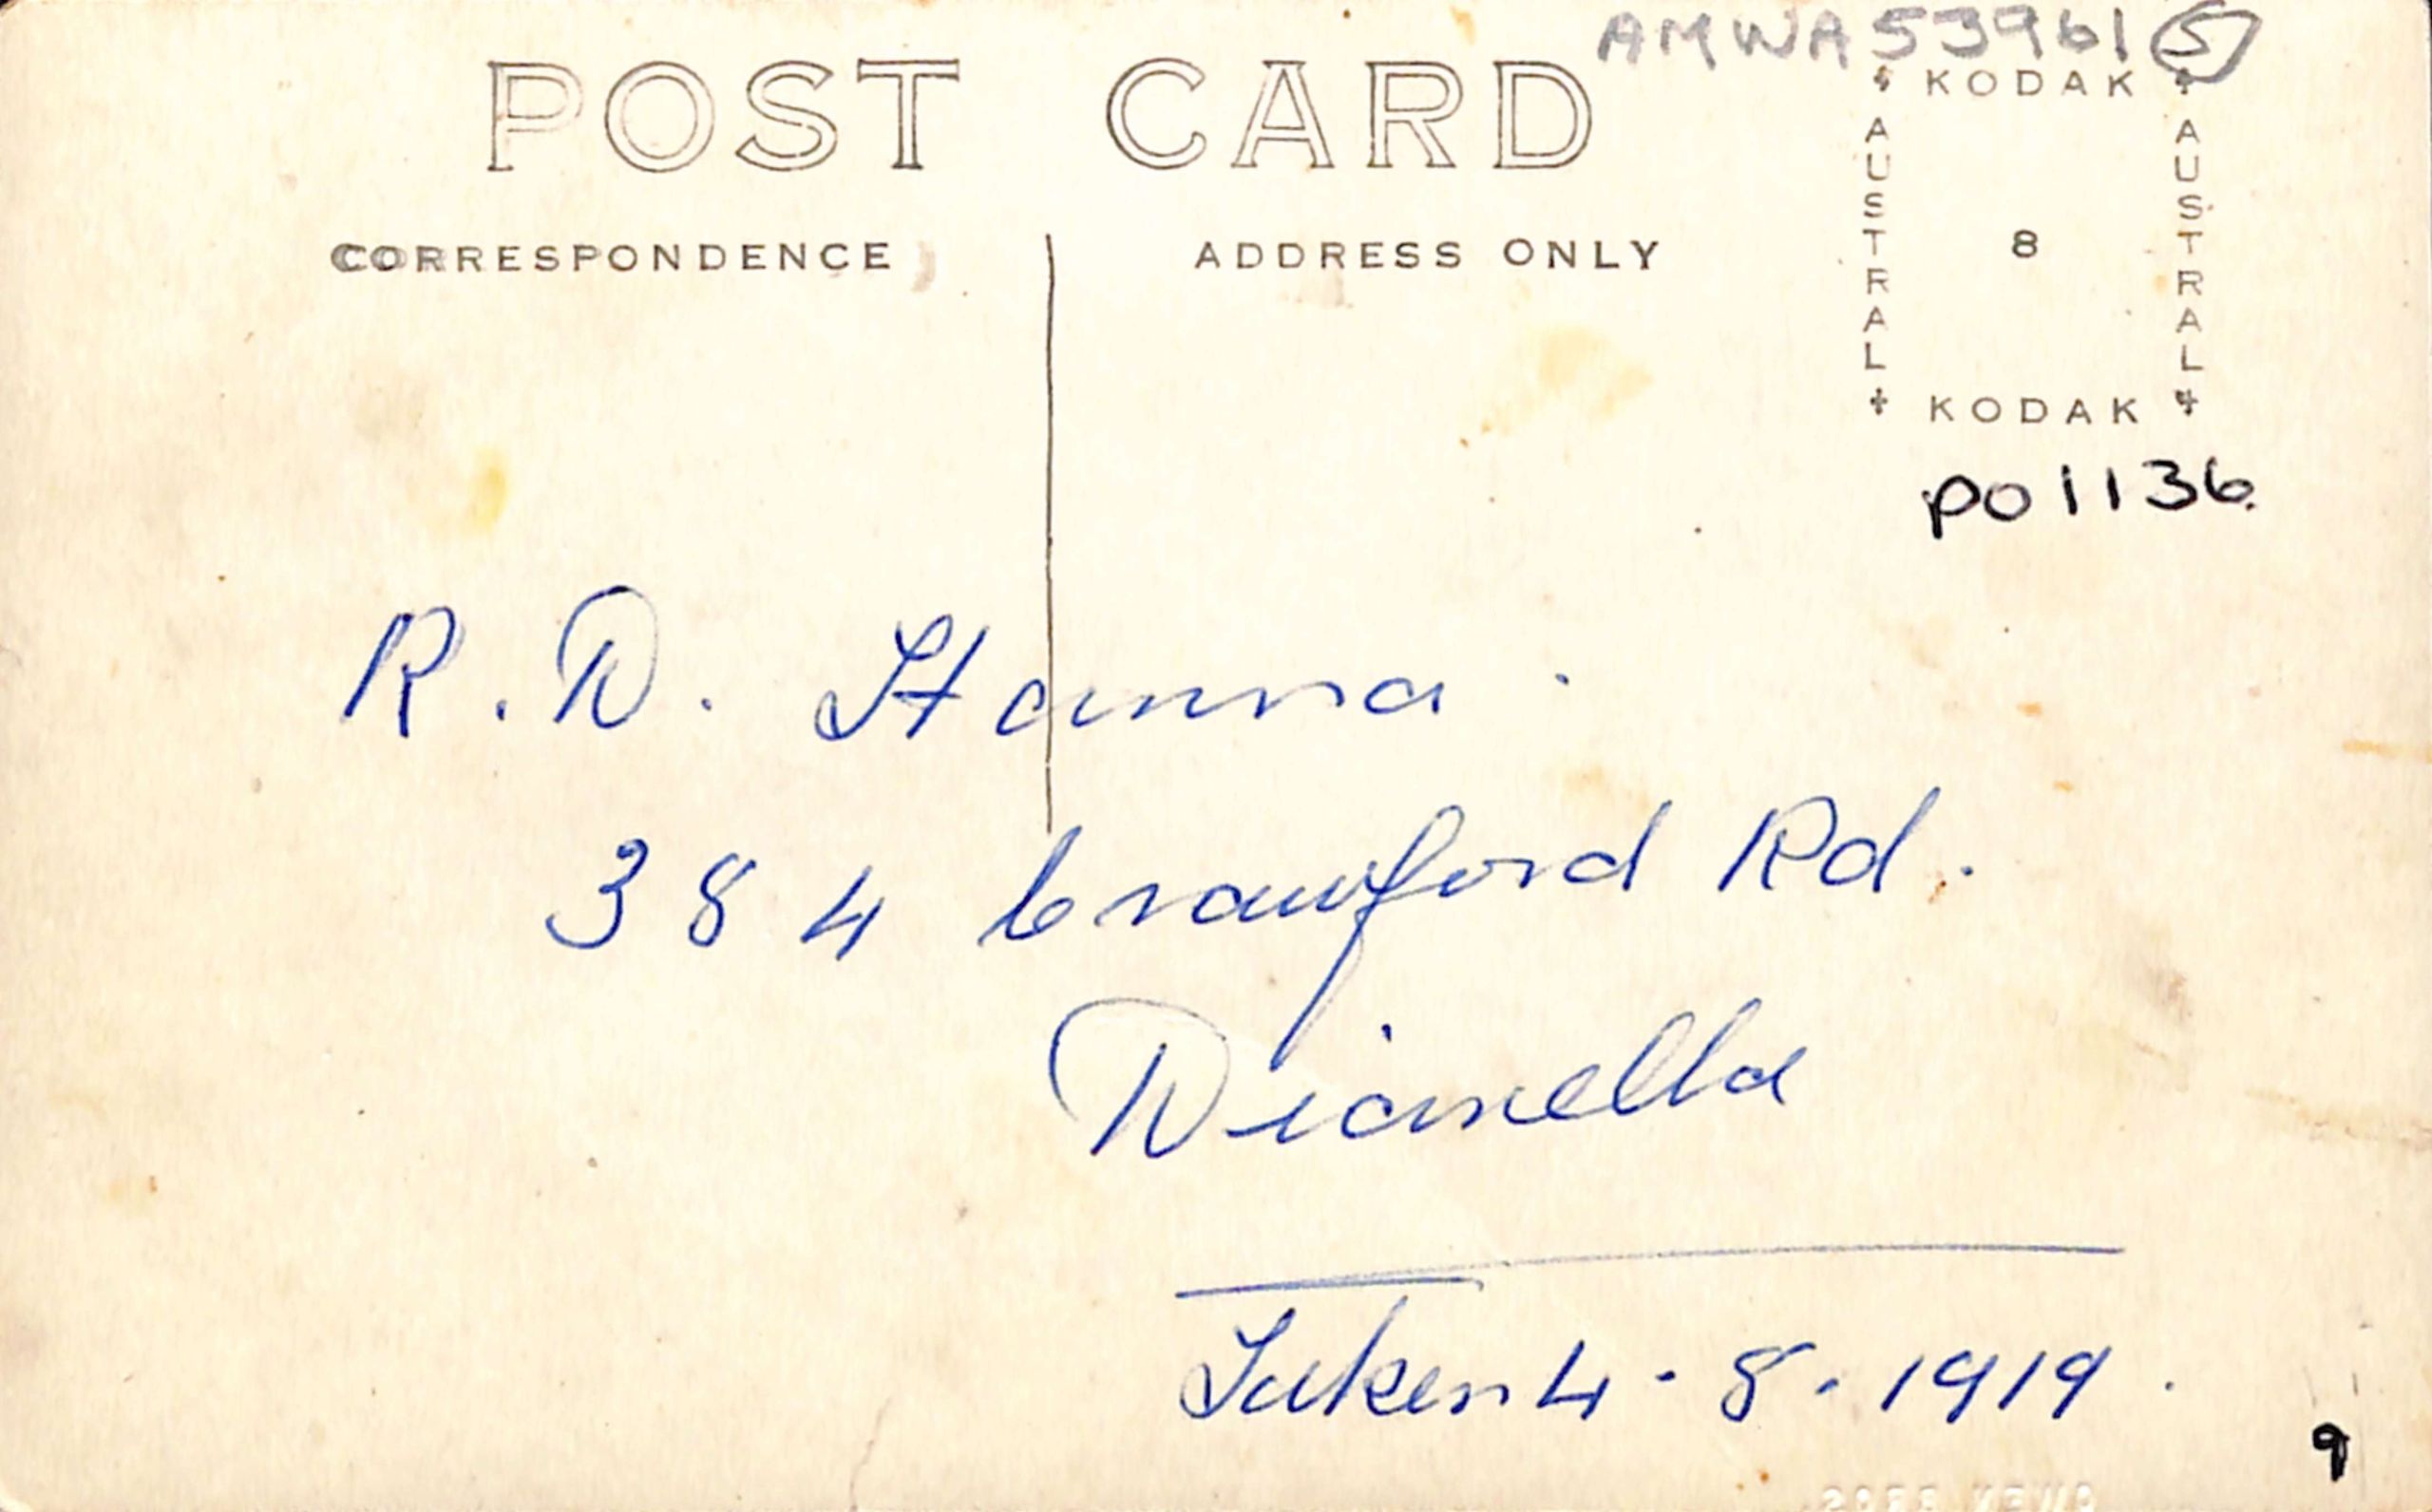 AMWA53961 5
POST CARD
KODAK
AUSTRAL
AUSTRAL
8
KODAK
CORRESPONDENCE
ADDRESS ONLY
P01136
R. D. Hanna.
384 Crawford Rd.
Dianella
Taken 4-8-1919.
9
OWEN BROS.